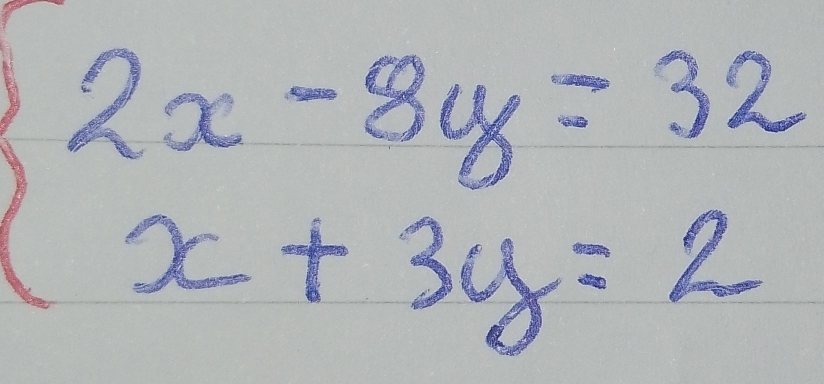 2x - 8y = 32
x + 3y = 2